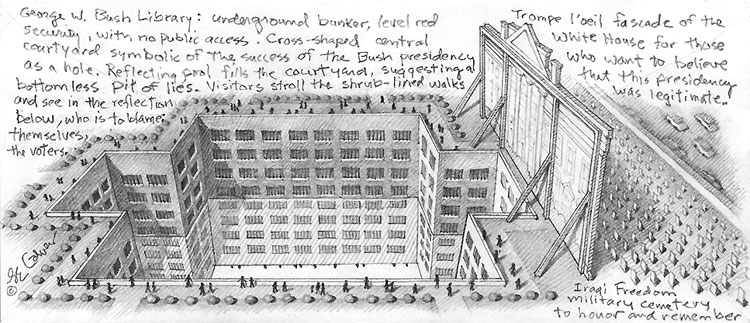 George W. Bush Library: underground bunker, level red
security, with no public access. Cross-shaped central
courtyard symbolic of the success of the Bush presidency
as a hole. Reflecting pool fills the courtyard, suggesting a
bottomless pit of lies. Visitors stroll the shrub-lined walks
and see in the reflection
below, who is to blame:
themselves,
the voters.
Trompe l'oeil fascade of the
White House for those
who want to believe
that this presidency
was legitimate.
©
Iraqi Freedom
military cemetery
to honor and remember